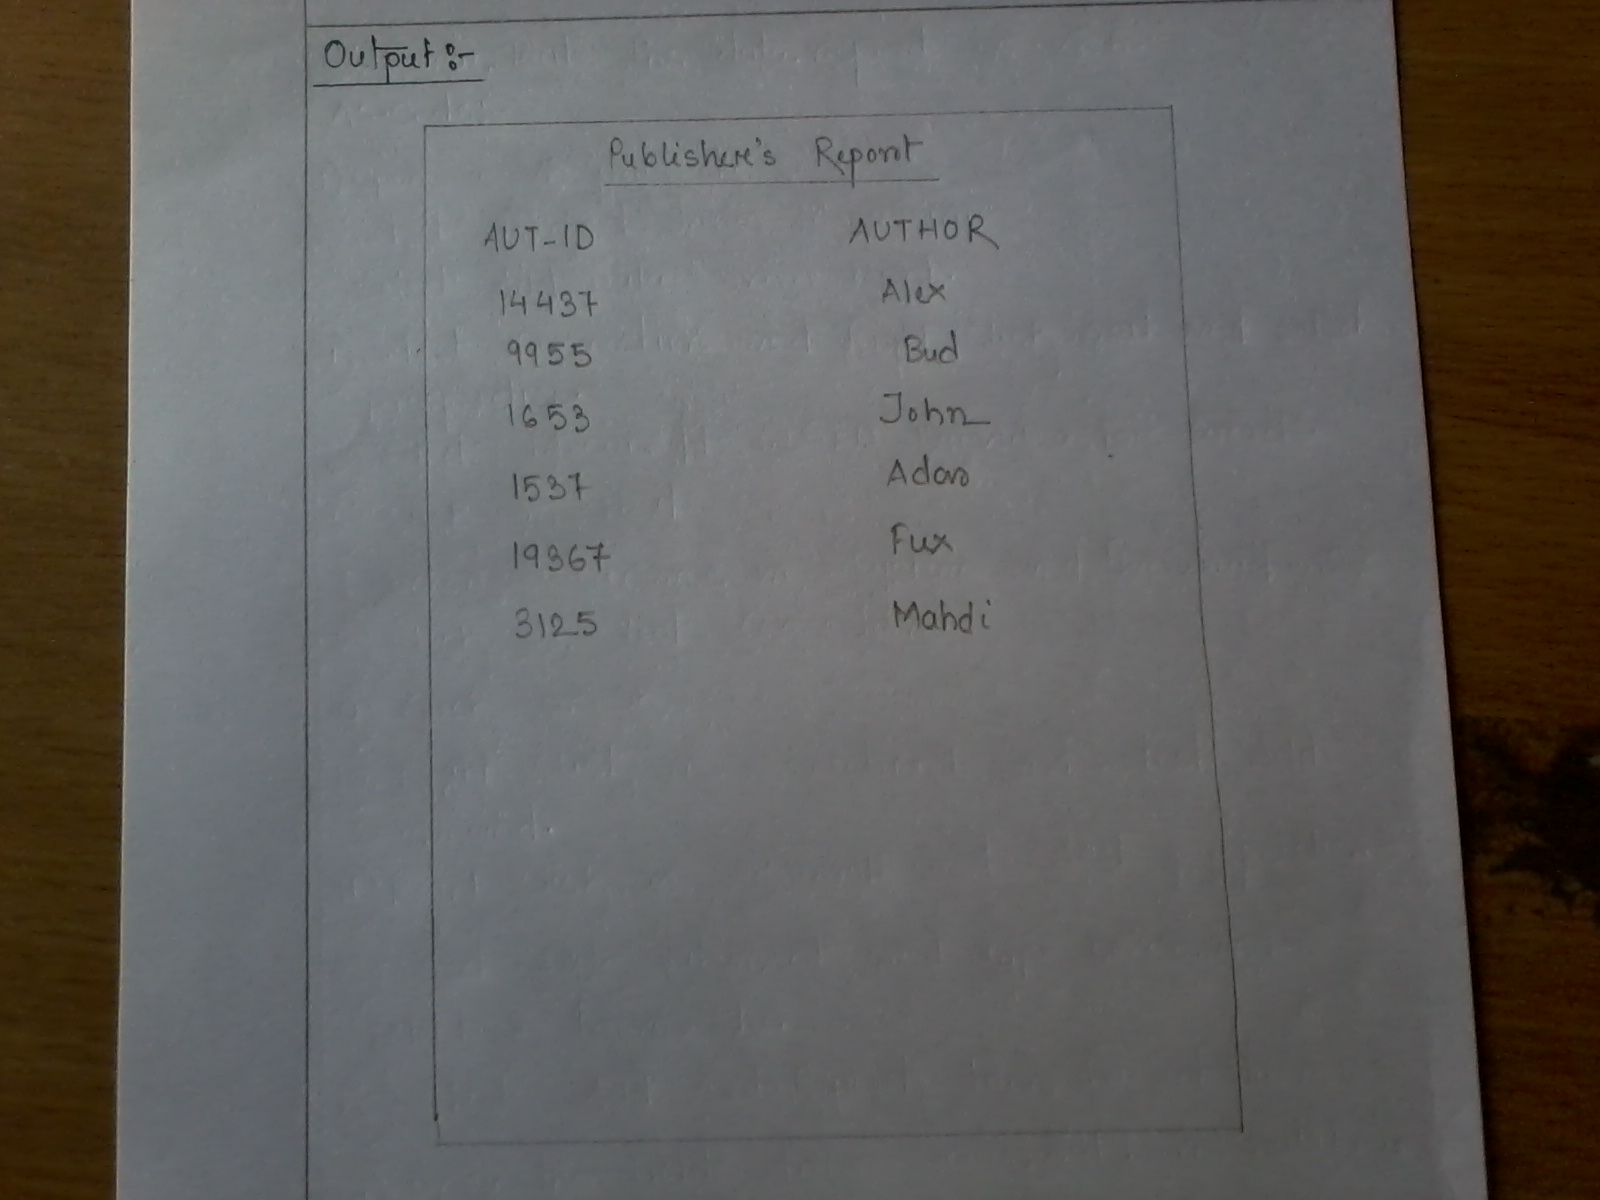 Output :-
Publisher's Report
AUT-ID AUTHOR
14437 Alex
9955 Bud
1653 John
1537
19367 Fux
3125 Mahdi